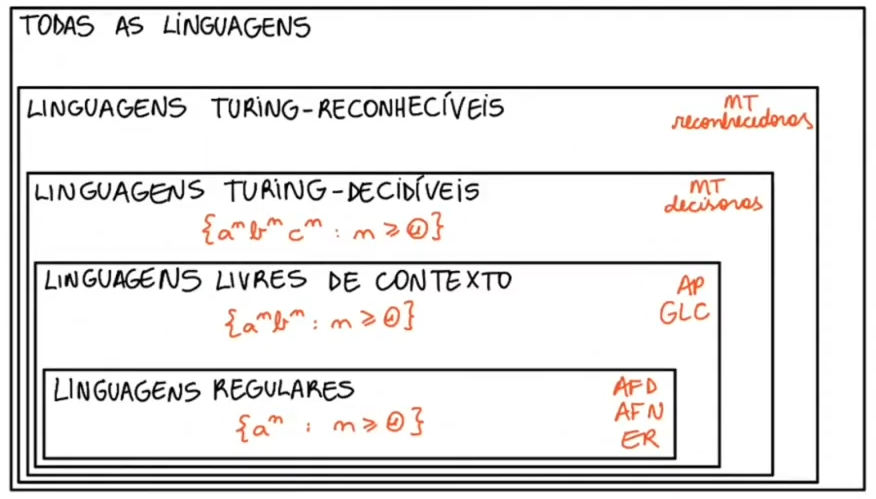 TODAS AS LINGUAGENS
LINGUAGENS TURING-RECONHECÍVEIS
MT
reconhecedoras
LINGUAGENS TURING-DECIDÍVEIS
MT
decisoras
{aⁿbⁿcⁿ : n ≥ 0}
LINGUAGENS LIVRES DE CONTEXTO
AP
GLC
{aⁿbⁿ : n ≥ 0}
LINGUAGENS REGULARES
AFD
AFN
ER
{aⁿ : n ≥ 0}